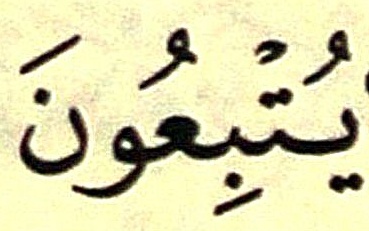 يُتْبِعُونَ